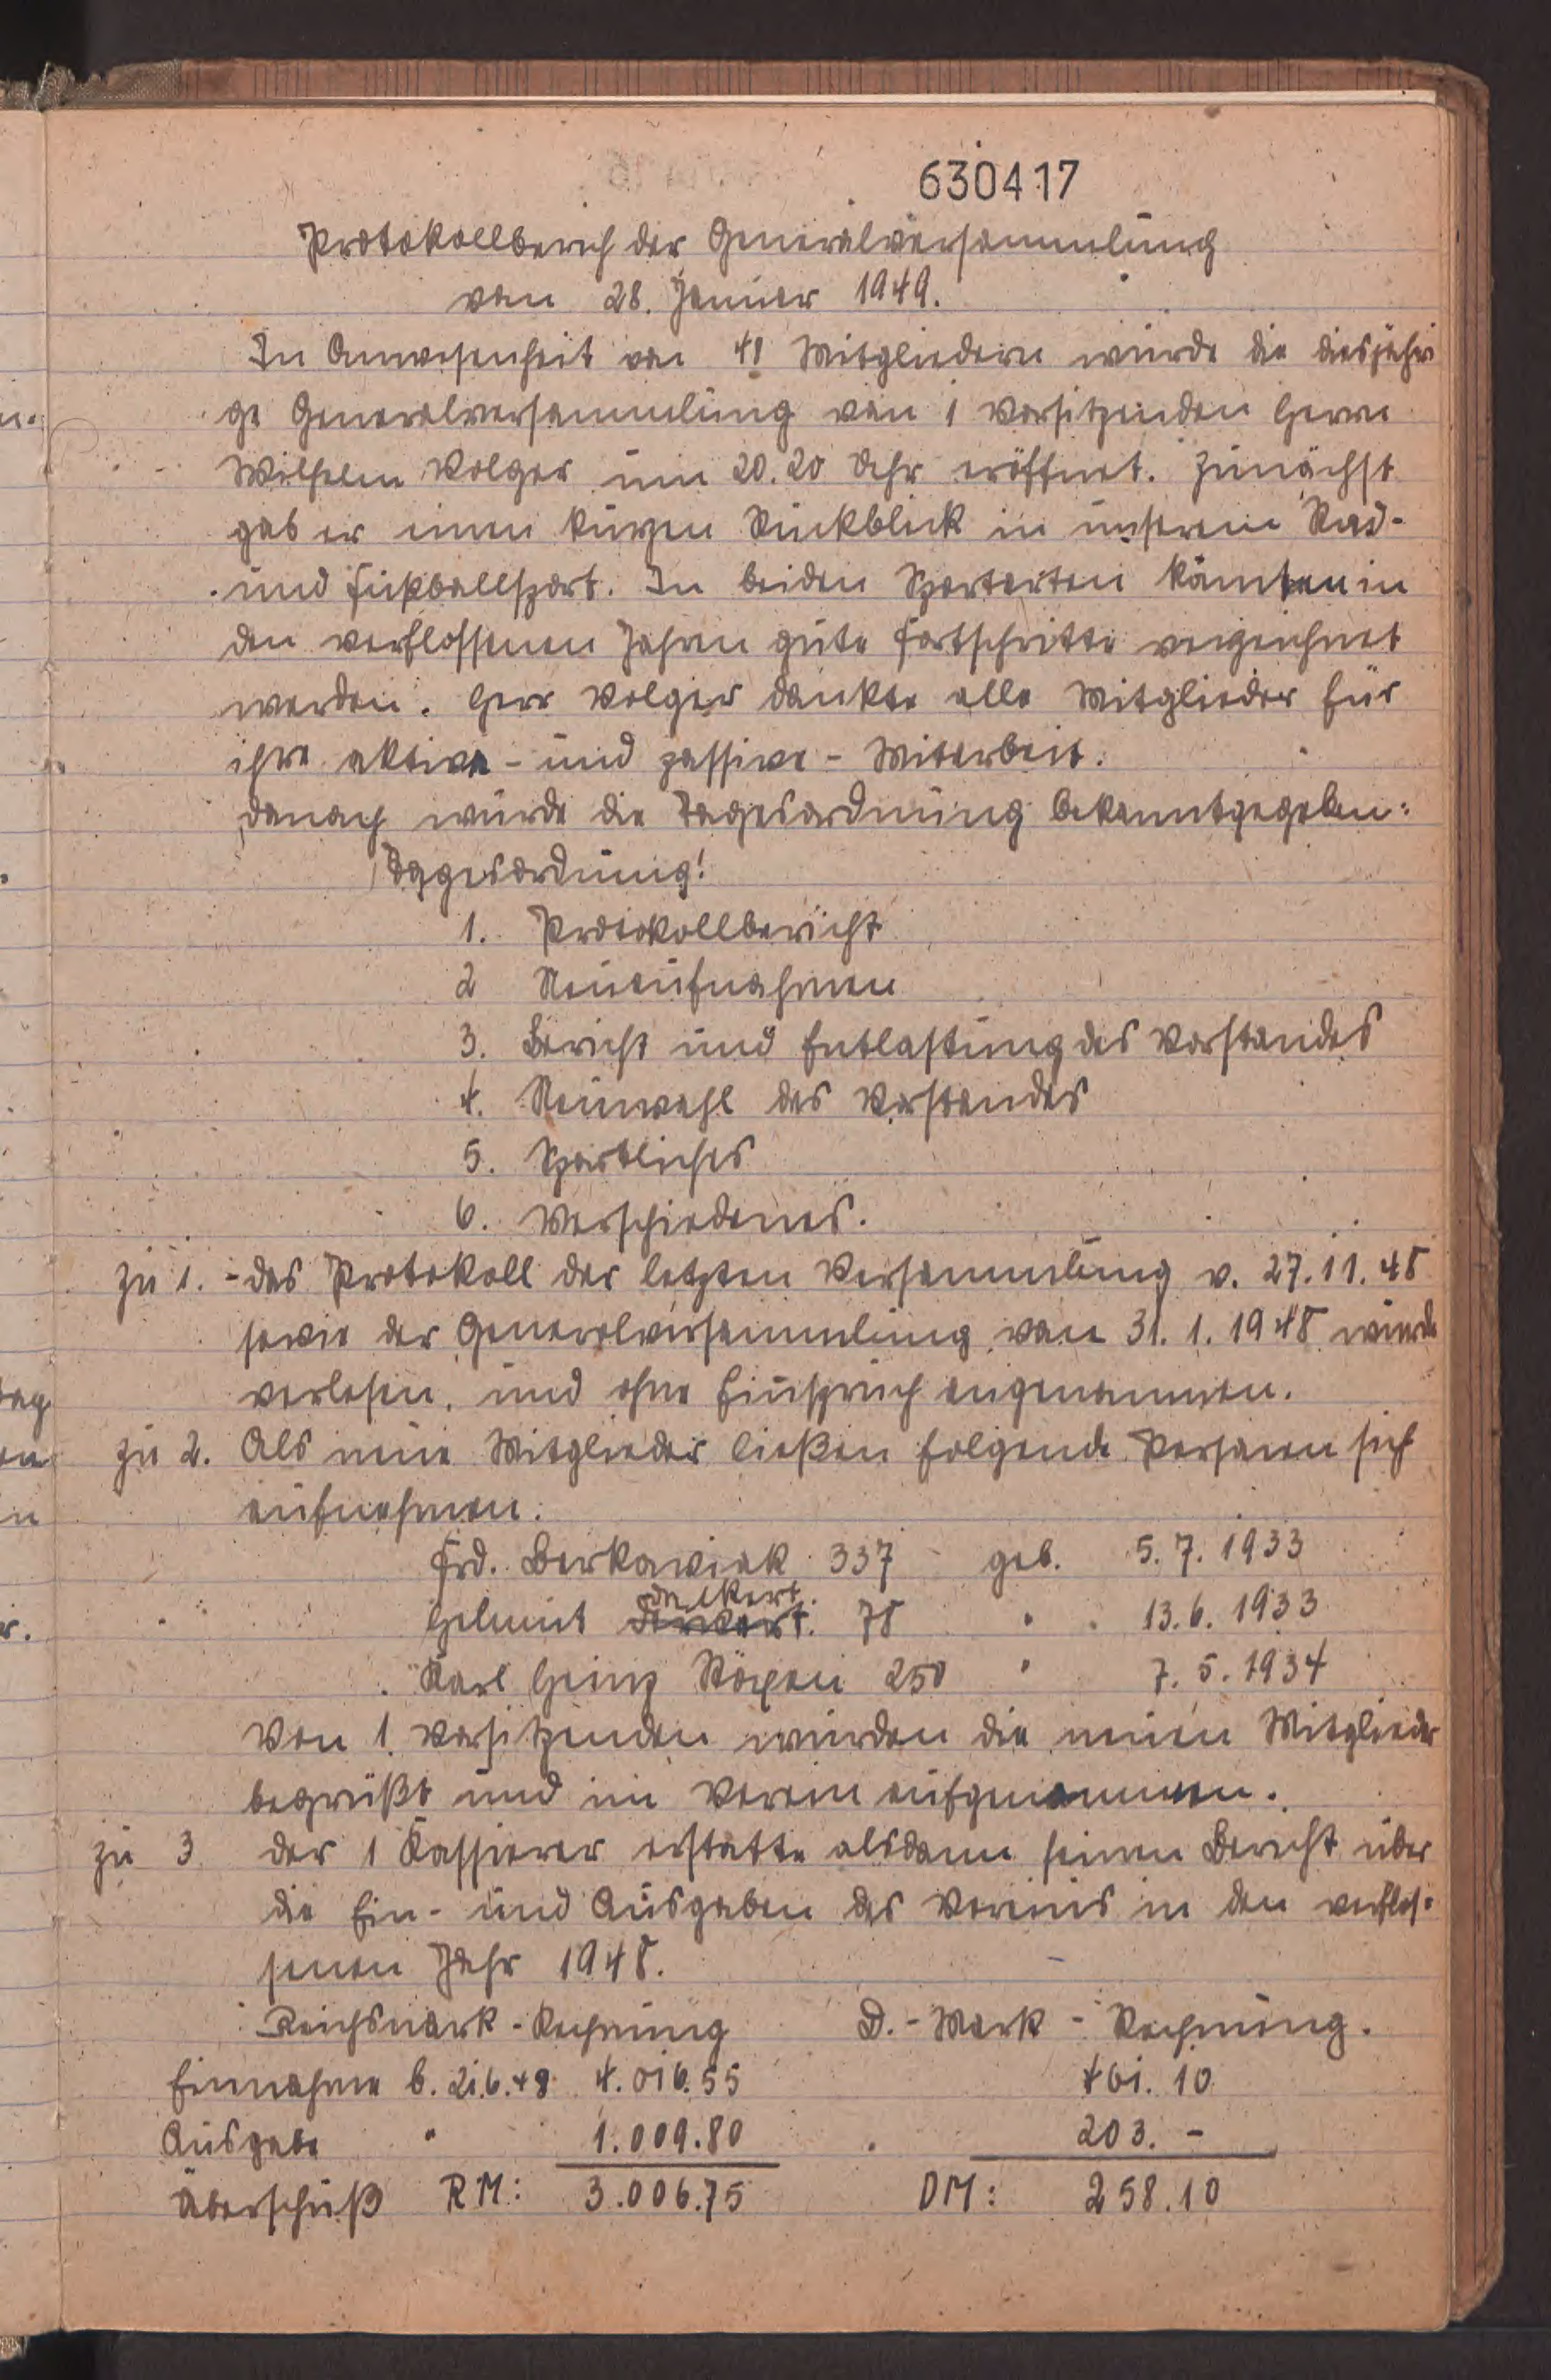 630417
Protokollberich der Generalversammlung
vom 28. Januar 1949.
In Anwesenheit von 41 Mitgliedern wurde die diesjähri
ge Generalversammlung vom 1 Vorsitzenden Herrn
Wilhelm Volger um 20.20 Uhr eröffnet. Zunächst
gab er einen kurzen Rückblick in unserem Rad-
und Fußballsport. In beiden Sportarten konnten in
den verflossenen Jahren gute Fortschritte verzeichnet
werden. Herr Volger dankte alle Mitglieder für
ihre aktive- und passive- Mitarbeit.
Danach wurde die Tagesordnung bekanntgegeben:
Tagesordnung!
1. Protokollbericht
2 Neuaufnahmen
3. Bericht und Entlastung des Vorstandes
4. Neuwahl des Vorstandes
5. Sportliches
6. Verschiedenes.
zu 1. - das Protokoll der letzten Versammlung v. 27.11.48
sowie der Generalversammlung vom 31. 1. 1948 wurde
verlesen, und ohne Einspruch angenommen.
zu 2. Als neue Mitglieder ließen folgende Personen sich
aufnehmen.
Frd. Berkawiak 337 geb. 5. 7. 1933
Helmut 78 " 13. 6. 1933
Karl Heinz 250 " 7. 5. 1934
Von 1. Vorsitzenden wurden die neuen Mitglieder
begrüßt und im Verein aufgenommen.
zu 3 der 1 Kassierer erstatte alsdann seinen Bericht über
die Ein- und Ausgaben des Vereins in den verflos-
senen Jahr 1948.
Reichsmark - Rechnung D. - Mark - Rechnung.
Einnahme b. 21.6.48 4.016.55 461. 10
Ausgabe " 1.009.80 203. -
Überschuß RM: 3.006.75 DM: 258.10